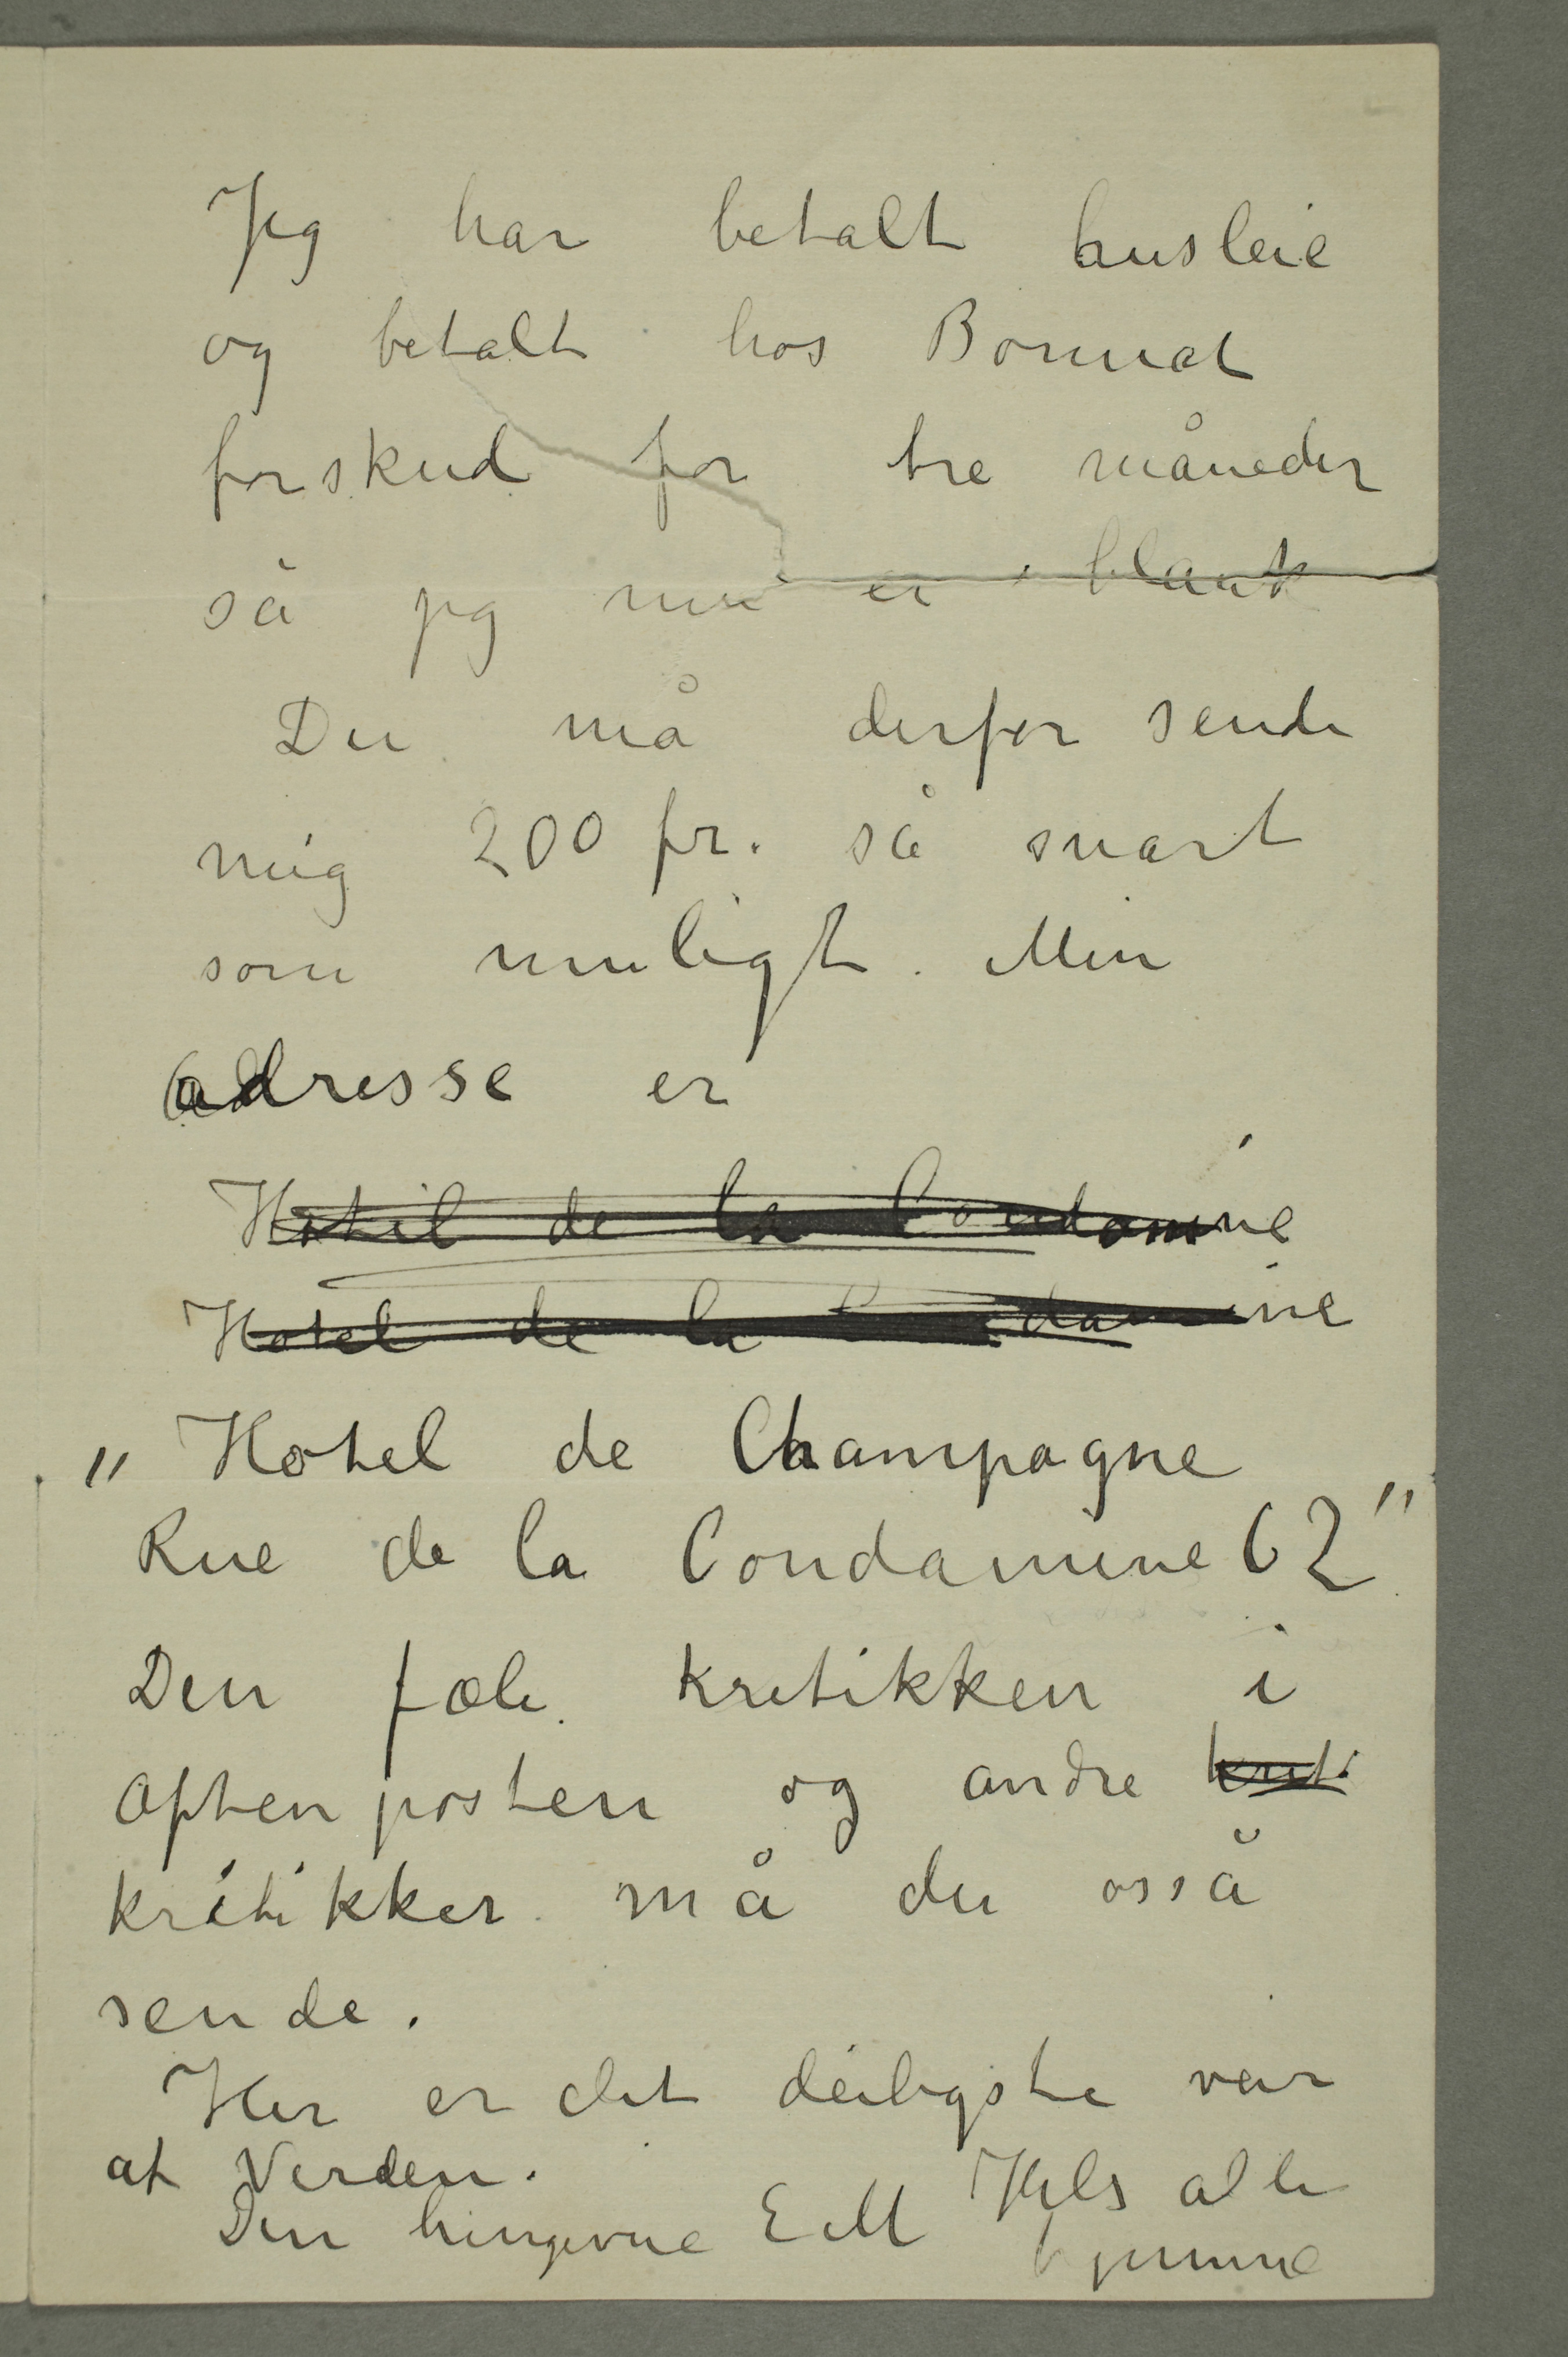 Jeg har betalt husleie
og betalt hos Bonnat
forskud for tre måneder
så jeg nu er blank
Du må derfor sende
mig 200 fr. så snart
som muligt. Min
adresse er
Hotel de la Condamine
Hotel de la Condamine
„Hotel de Champagne
Rue de la Condamine 62"
Den fæle kritikken i
Aftenposten og andre kriti
kritikker må du osså
sende.
Her er det deiligste veir
at Verden.
Din hengivne E M Hils alle
hjemme